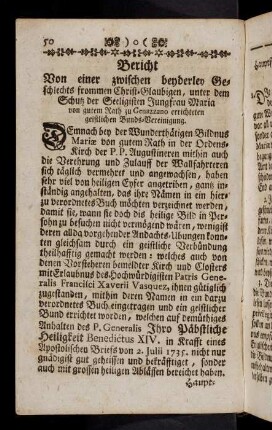 50 )o(
Bericht
Von einer zwischen beyderley Ge-
schlechts frommen Christ-Glaubigen, unter dem
Schutz der Seeligisten Jungfrau Maria
von gutem Rath zu Genazzano errichteten
geistlichen Bunds-Vereinigung.
Demnach bey der Wunderthätigen Bildnus
Mariæ von gutem Rath in der Ordens-
Kirch der P. P. Augustineren mithin auch
die Verehrung und Zulauff der Wallfahrteren
sich täglich vermehret und angewachsen, haben
sehr viel von heiligen Eyfer angetriben, ganz in-
ständig angehalten, das ihre Nämen in ein hier-
zu verordnetes Buch möchten verzeichnet werden,
damit sie, wann sie doch dis heilige Bild in Per-
sohn zu besuchen nicht vermögend wären, wenigist
deren allda vorgehender Andachts-Übungen konn-
ten gleichsam durch ein geistliche Verbündung
theilhafftig gemacht werden: welches auch von
denen Vorsteheren bemeldter Kirch und Closters
mit Erlaubnus des Hochwürdigisten Patris Gene-
ralis Francisci Xaverii Vasquez, ihnen gütiglich
zugestanden, mithin deren Namen in ein darzu
verordnetes Buch eingetragen und ein geistlicher
Bund errichtet worden, welchen auf demüthiges
Anhalten des P. Generalis Ihro Päbstliche
Heiligkeit Benedictus XIV. in Krafft eines
Apostolischen Briefs von 2. Julii 1735. nicht nur
gnädigist gut geheissen und bekräfftiget, sonder
auch mit grossen heiligen Ablässen bereichet haben.
Haupt-